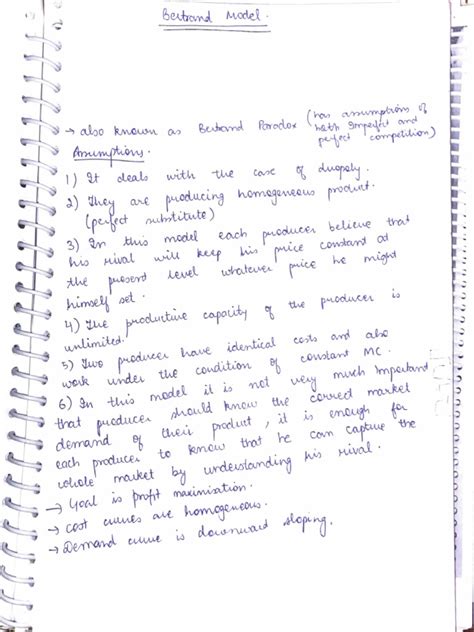 Bertrand Model.
→ also known as Bertrand Paradox (has assumptions of
both Imperfect and
perfect competition)
Assumptions.
1) It deals with the case of duopoly.
2) They are producing homogeneous product.
(perfect substitute)
3) In this model each producer believe that
his rival will keep his price constant at
the present level whatever price he might
himself set.
4) The productive capacity of the producer is
unlimited.
5) Two producer have identical costs and also
work under the condition of constant MC.
6) In this model it is not very much Important
that producer should know the correct market
demand of their product, it is enough for
each producer to know that he can capture the
whole market by understanding his rival.
→ Goal is profit maximisation.
→ cost curves are homogeneous.
→ Demand curve is downward sloping.